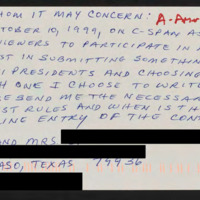 HOM IT MAY CONCERN: A-Am
TOBER 10, 1999, ON C-SPAN AS
VIEWERS TO PARTICIPATE IN A
ST IN SUBMITTING SOMETHIN
PRESIDENTS AND CHOOSING
H ONE I CHOOSE TO WRITE
SEND ME THE NECESSA
ST RULES AND WHEN IS TH
LINE ENTRY OF THE CON
ND MRS
ASO, TEXAS 79936